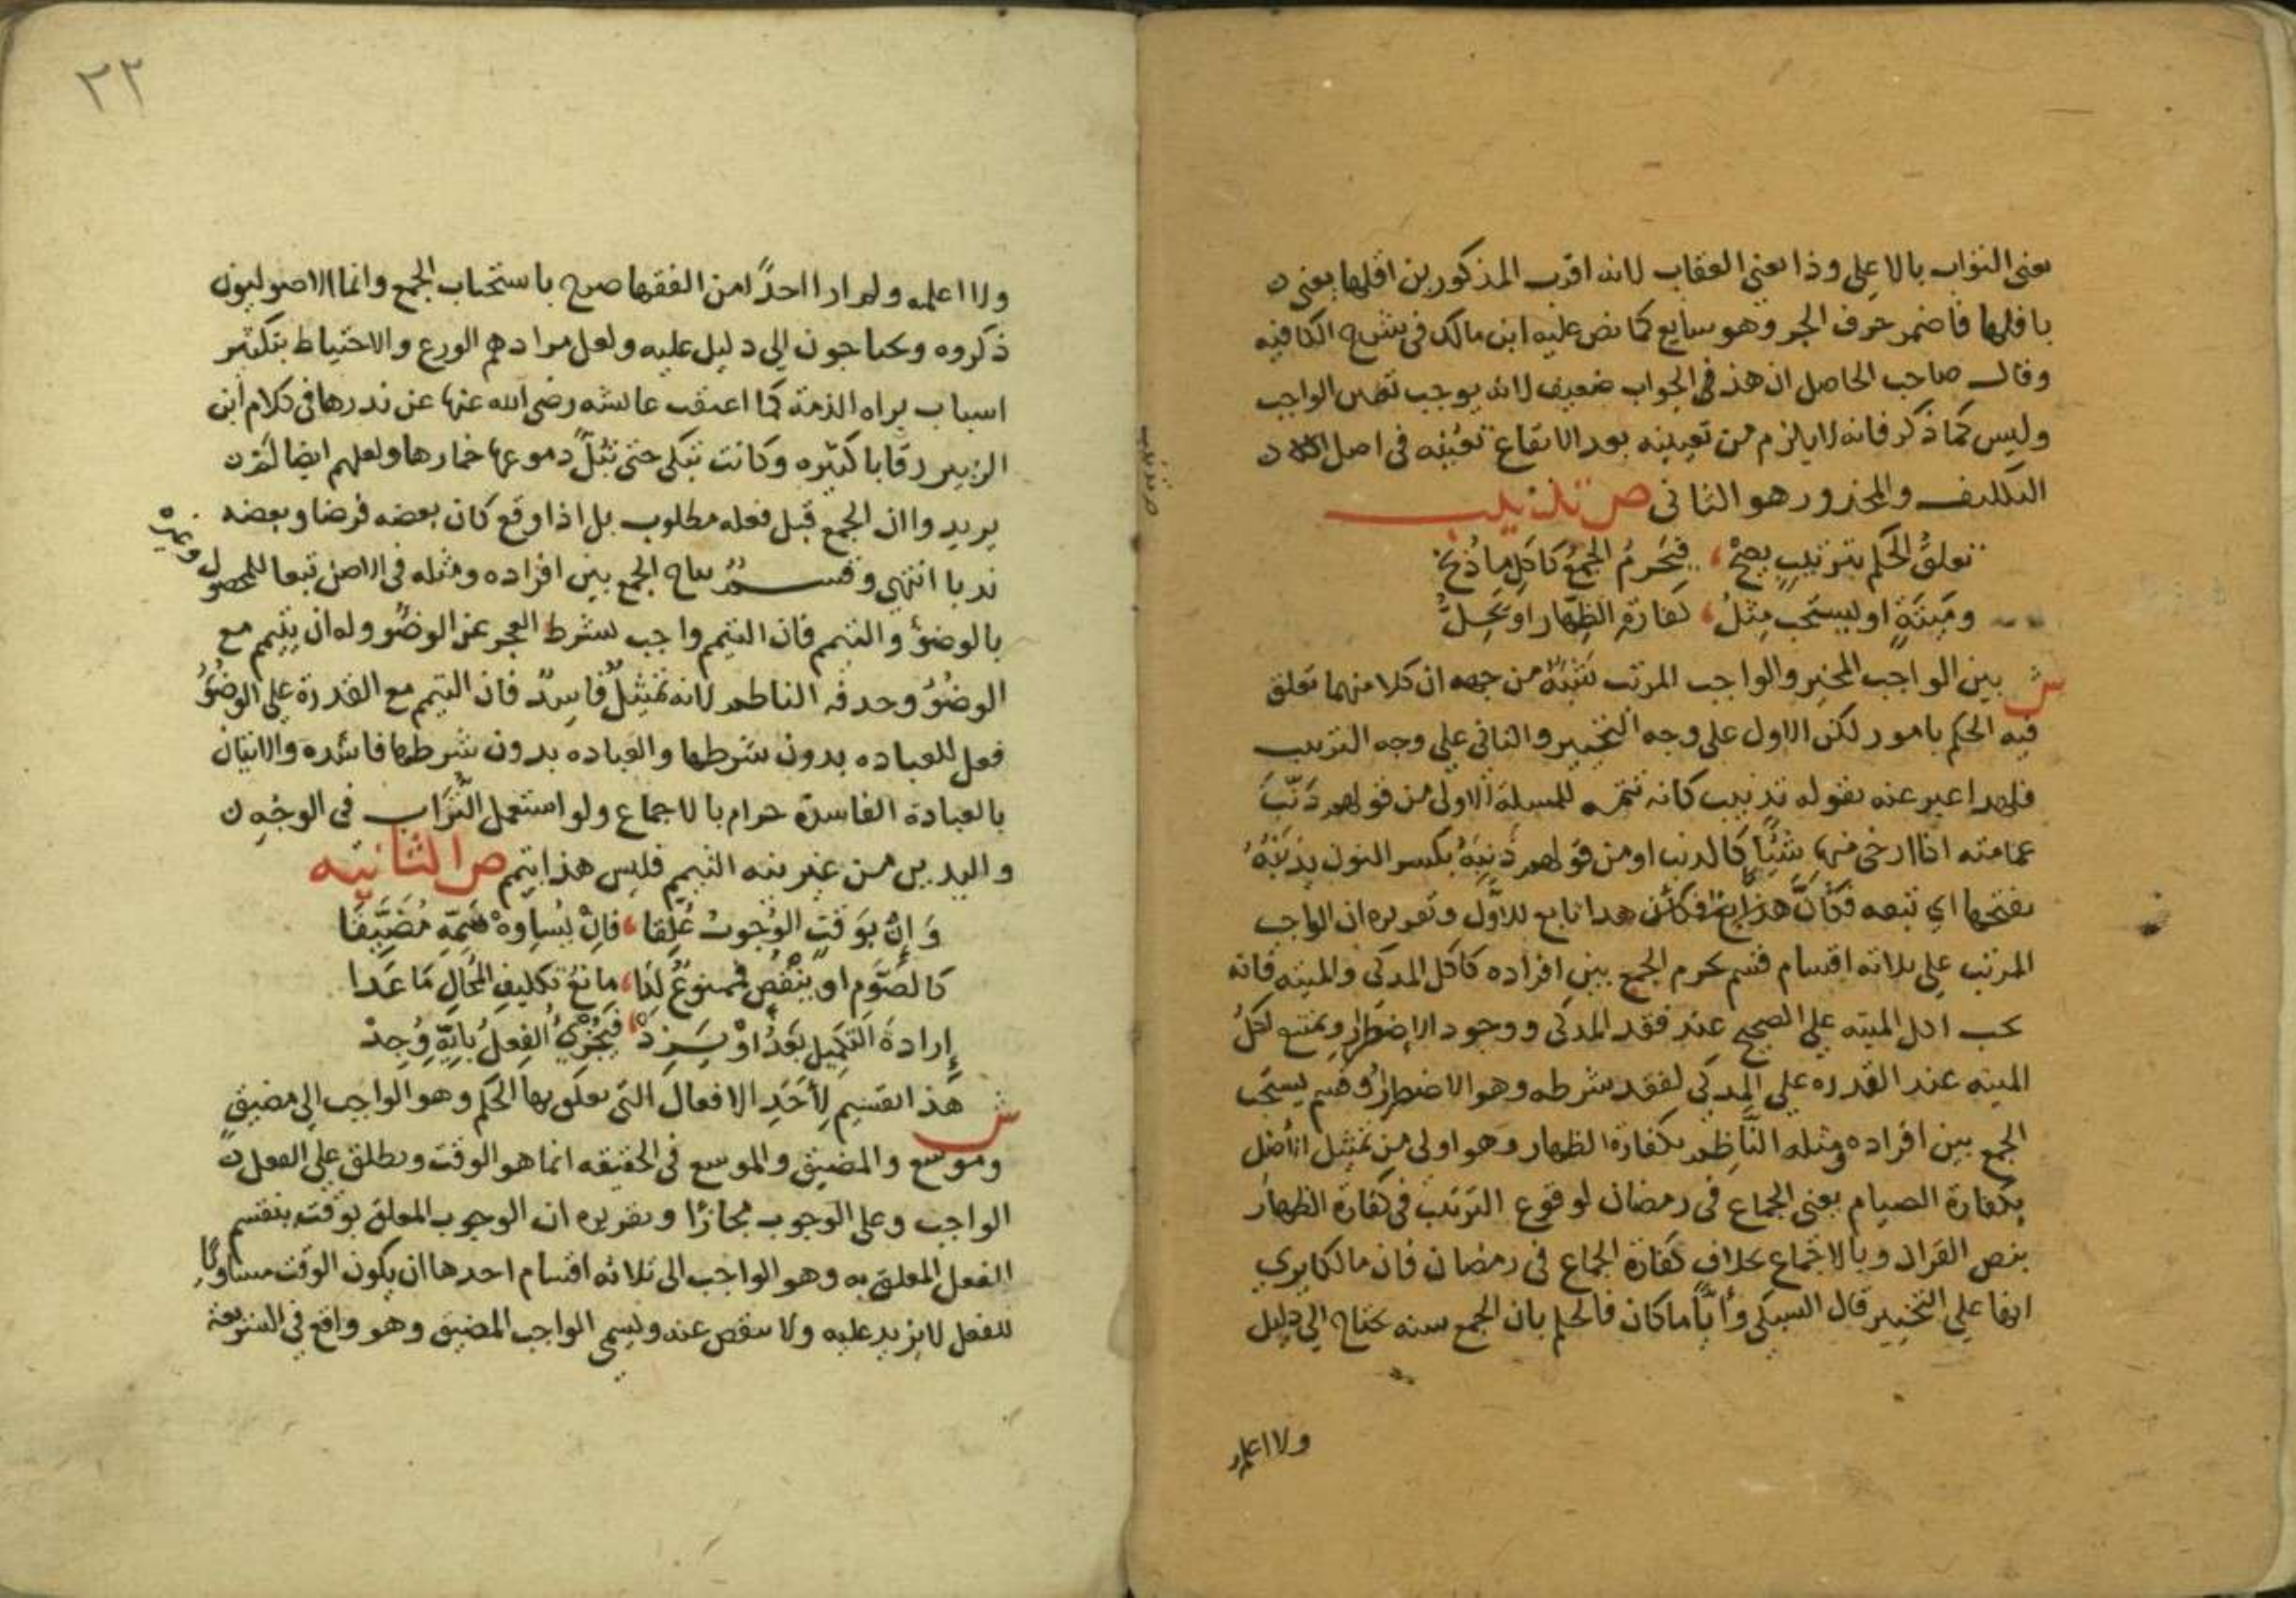 يعني الثواب بالاعلى وذا يعني العقاب لانه اقرب المذكورين اقلها يعني
باقلها فاضمر حرف الجر وهو سايع كما نص عليه ابن مالك في شرح الكافيه
وقال صاحب الحاصل ان هذ في الجواب ضعيف لانه يوجب تعين الواجب
وليس كما ذكر فانه لا يلزم من تعيينه بعد الايقاع تعينه في اصل
التكليف والمحذور هو الثاني ص تذنيب
تعلق الحكم بترتيب يصح ، فيحرم الجمع كاكل ما ذبح
وميتة او ليستحب مثل ، كفارة الظهار او يحل
ش بين الواجب المخير والواجب المرتب شبه من جهه ان كلا منهما تعلق
فيه الحكم بامور لكن الاول على وجه التخيير والثاني على وجه الترتيب
فلهدا عبر عنه بقوله تذنيب كانه تتمه للمسلة الاولى من قولهم ذنب
عمامته اذا ارخى منها شيئا كالدنب او من قولهم ذنبه بكسر النون يذنبه
بفتحها اي تبعه فكان هدا تابع للاول وتقريره ان الواجب
المرتب على ثلاثه اقسام قسم يحرم الجمع بين افراده كاكل المدكى والميته فانه
يجب اكل الميته على الصحيح عند فقد المدكى ووجود الاضطرار ويمتنع اكل
الميته عند القدره على المدكى لفقد شرطه وهو الاضطرار وقسم يستحب
الجمع بين افراده ومثله الناظم بكفارة الظهار وهو اولى من تمثيل الاصل
بكفارة الصيام يعني الجماع في رمضان لوقوع الترتيب في كفارة الظهار
بنص القران وبالاجماع بخلاف كفارة الجماع في رمضان فان مالكا يرى
انها على التخيير قال السبكي وايا ما كان فالحكم بان الجمع سنه يحتاج الى دليل
ولا اعلمه
٢٢
ولا اعلمه ولم ار احدا من الفقها صرح باستحباب الجمع وانما الاصوليون
ذكروه ويحتاجون الى دليل عليه ولعل مرادهم الورع والاحتياط بتكثير
اسباب براه الذمة كما اعتقت عائشه رضي الله عنها عن نذرها في كلام ابن
الزبير رقابا كثيره وكانت تبكي حتى تبل دموعها خمارها ولعلهم ايضا لم
يريدوا ان الجمع قبل فعله مطلوب بل اذا وقع كان بعضه فرضا وبعضه
ندبا انتهى وقسم يباح الجمع بين افراده ومثله في الاصل تبعا للمحصول وغيره
بالوضؤ والتيمم فان التيمم واجب بشرط العجز عن الوضؤ وله ان يتيمم مع
الوضؤ وحدفه الناظم لانه تمثيل فاسد فان التيمم مع القدرة على الوضؤ
فعل للعباده بدون شرطها والعباده بدون شرطها فاسده والاتيان
بالعبادة الفاسدة حرام بالاجماع ولو استعمل التراب في الوجه
واليدين من غير نيه التيمم فليس هذا بتيمم ص الثانيه
وان بوقت الوجوب علقا ، فان يساوه فسمه مضيقا
كالصوم او ينقص فممنوع لدا ، مانع تكليف المحال ما عدا
إرادة التكميل بعد او يزد ، فيجزي الفعل بايه وجد
ش هذا تقسيم لاحد الافعال التي تعلق بها الحكم وهو الواجب الى مضيق
وموسع والمضيق والموسع في الحقيقه انما هو الوقت ويطلق على الفعل
الواجب وعلى الوجوب مجازا وتقريره ان الوجوب المعلق بوقت ينقسم
الفعل المعلق به وهو الواجب الى ثلاثه اقسام احدها ان يكون الوقت مساويا
للفعل لا يزيد عليه ولا ينقص عنه ويسمى الواجب المضيق وهو واقع في الشريعة